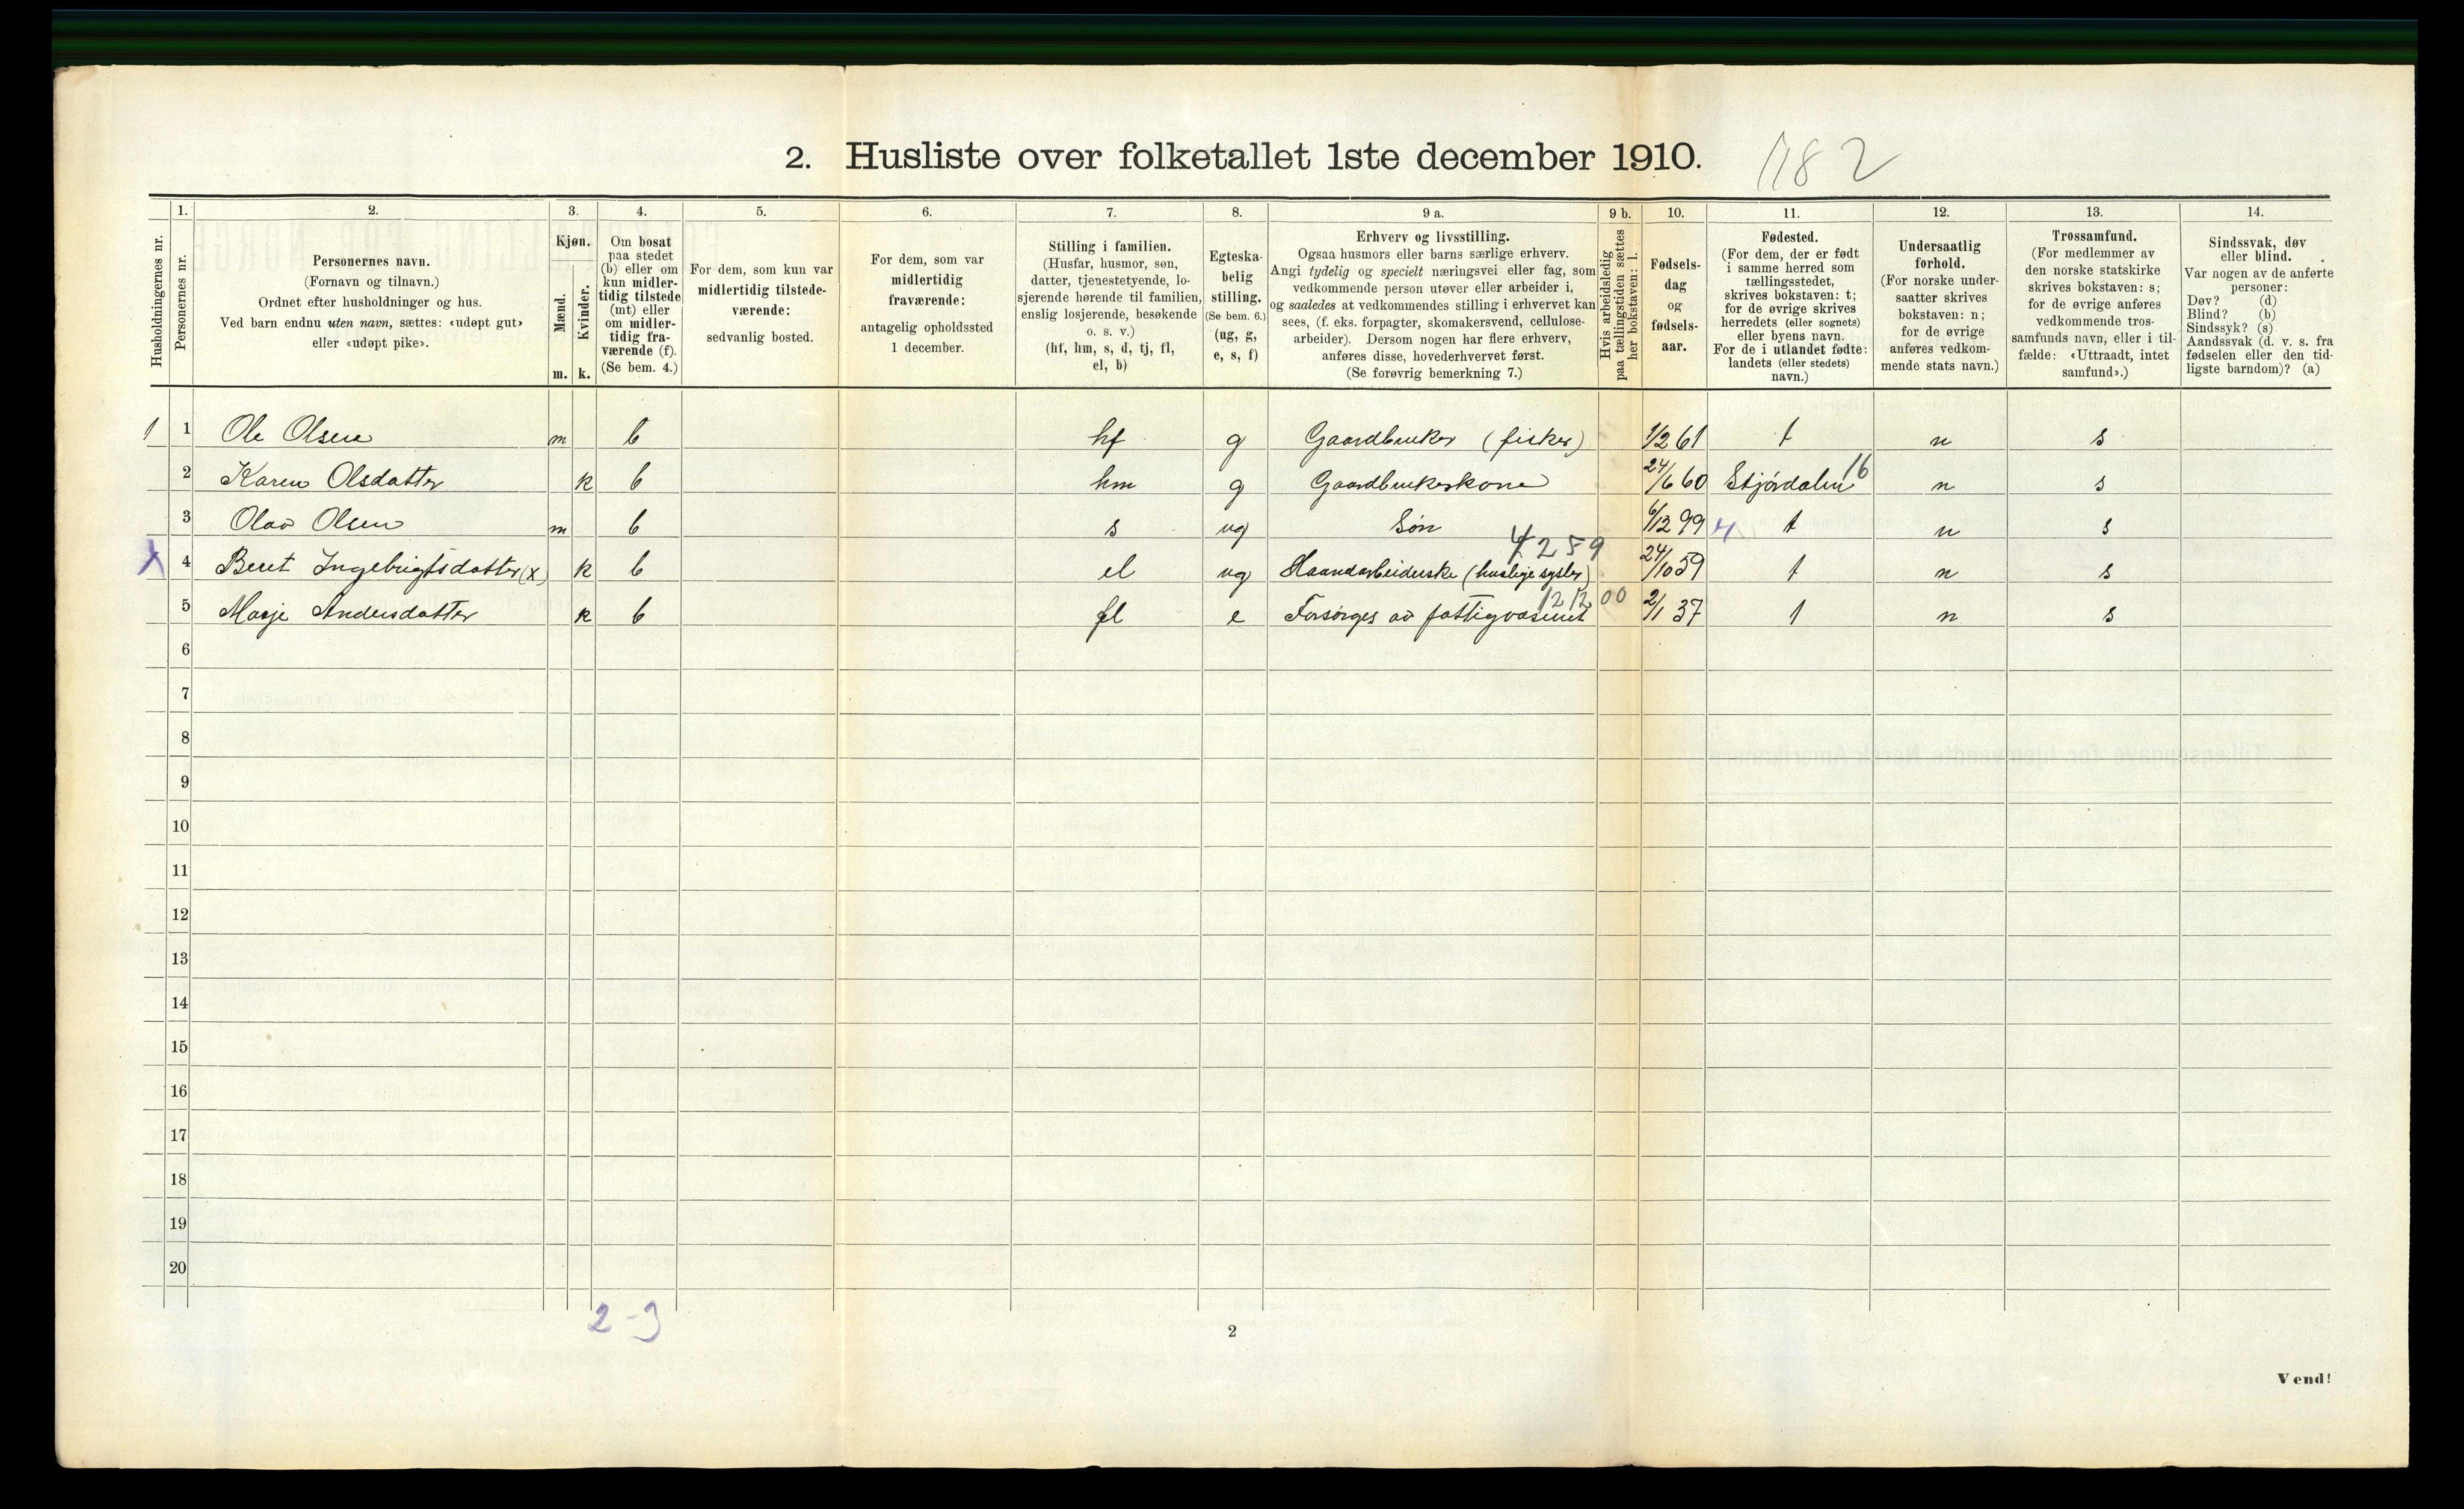 2. Husliste over folketallet 1ste december 1910. 1182
1. 2. 3. 4. 5. 6. 7. 8. 9 a. 9 b. 10. 11. 12. 13. 14.
Husholdningernes nr.
Personernes nr.
Personernes navn.
(Fornavn og tilnavn.)
Ordnet efter husholdninger og hus.
Ved barn endnu uten navn, sættes: «udøpt gut»
eller «udøpt pike».
Kjøn.
Mænd.
Kvinder.
m. k.
Om bosat
paa stedet
(b) eller om
kun midler-
tidig tilstede
(mt) eller
om midler-
tidig fra-
værende (f).
(Se bem. 4.)
For dem, som kun var
midlertidig tilstede-
værende:
sedvanlig bosted.
For dem, som var
midlertidig
fraværende:
antagelig opholdssted
1 december.
Stilling i familien.
(Husfar, husmor, søn,
datter, tjenestetyende, lo-
sjerende hørende til familien,
enslig losjerende, besøkende
o. s. v.)
(hf, hm, s, d, tj, fl,
el, b)
Egteska-
belig
stilling.
(Se bem. 6.)
(ug, g,
e, s, f)
Erhverv og livsstilling.
Ogsaa husmors eller barns særlige erhverv.
Angi tydelig og specielt næringsvei eller fag, som
vedkommende person utøver eller arbeider i,
og saaledes at vedkommendes stilling i erhvervet kan
sees, (f. eks. forpagter, skomakersvend, cellulose-
arbeider). Dersom nogen har flere erhverv,
anføres disse, hovederhvervet først.
(Se forøvrig bemerkning 7.)
Hvis arbeidsledig
paa tællingstiden sættes
her bokstaven: l.
Fødsels-
dag
og
fødsels-
aar.
Fødested.
(For dem, der er født
i samme herred som
tællingsstedet,
skrives bokstaven: t;
for de øvrige skrives
herredets (eller sognets)
eller byens navn.
For de i utlandet fødte:
landets (eller stedets)
navn.)
Undersaatlig
forhold.
(For norske under-
saatter skrives
bokstaven: n;
for de øvrige
anføres vedkom-
mende stats navn.)
Trossamfund.
(For medlemmer av
den norske statskirke
skrives bokstaven: s;
for de øvrige anføres
vedkommende tros-
samfunds navn, eller i til-
fælde: «Uttraadt, intet
samfund».)
Sindssvak, døv
eller blind.
Var nogen av de anførte
personer:
Døv? (d)
Blind? (b)
Sindssyk? (s)
Aandssvak (d. v. s. fra
fødselen eller den tid-
ligste barndom)? (a)
1 1 Ole Olsen m b hf g Gaardbruker (fisker) 1/2 61 t n s
2 Karen Olsdatter k b hm g Gaardbrukerkone 24/6 60 Stjørdalen 16 n s
3 Olav Olsen m b s ug Søn 6/12 99 4 t n s
X 4 Beret Ingebrigtsdatter (x) k b el ug Haandarbeiderske (huslige sysler) 4259 24/10 59 t n s
5 Marje Andersdatter k b fl e Forsørges av fattigvæsenet 121200 2/1 37 t n s
6
7
8
9
10
11
12
13
14
15
16
17
18
19
20
2-3
2
Vend!